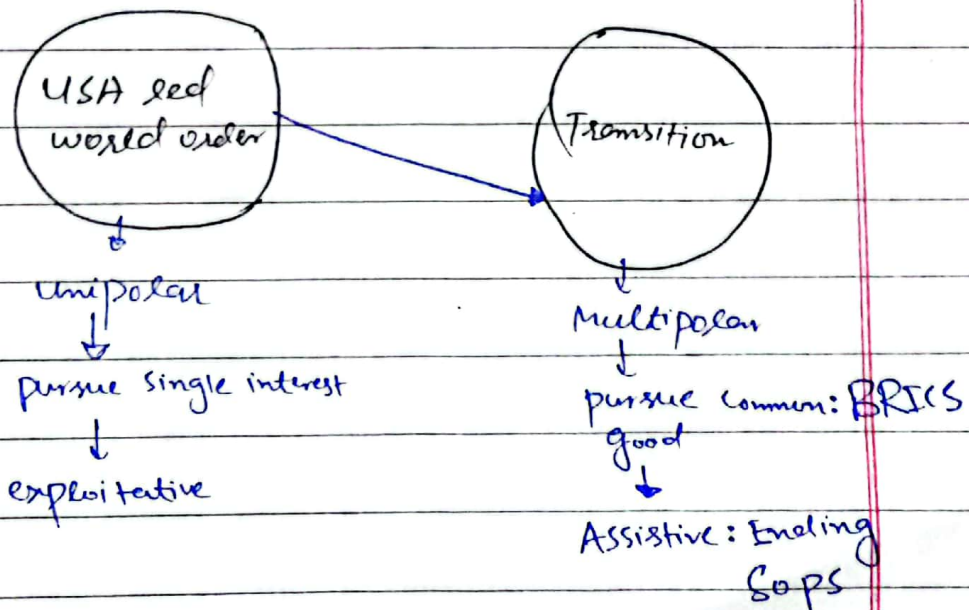 USA led
world order
Transition
unipolar
pursue single interest
exploitative
Multipolar
pursue common: BRICS
good
Assistive: Ending
Sops